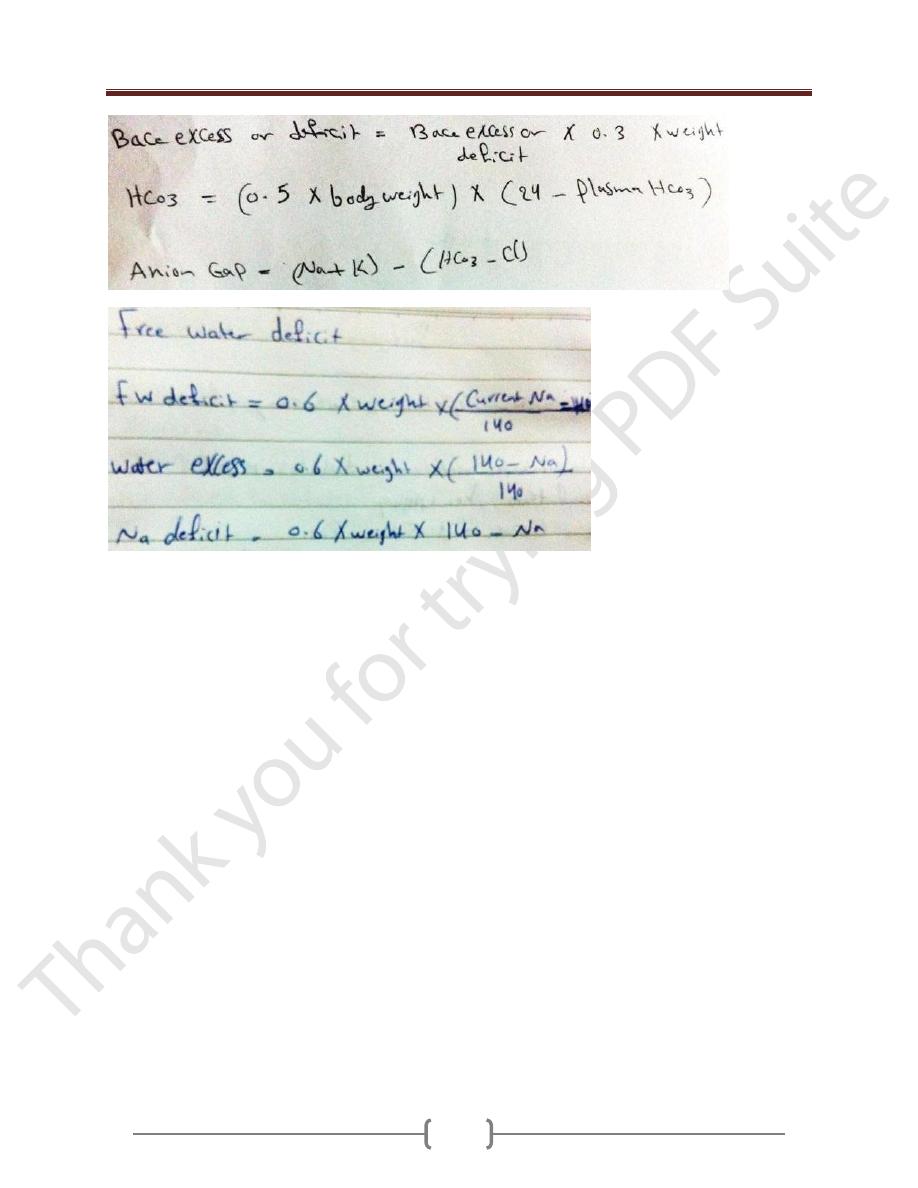 Bace excess or deficit = Bace excess or X 0.3 X weight
deficit
HCo3 = (0.5 X body weight) X (24 - Plasma Hco3)
Anion Gap = (Na+ K) - (HCo3 - Cl)
Free water deficit
FW deficit = 0.6 X weight X (Current Na - 140
140
Water excess = 0.6 X weight X ( 140 - Na)
140
Na deficit = 0.6 X weight X 140 - Na
Thank you for trying PDF Suite